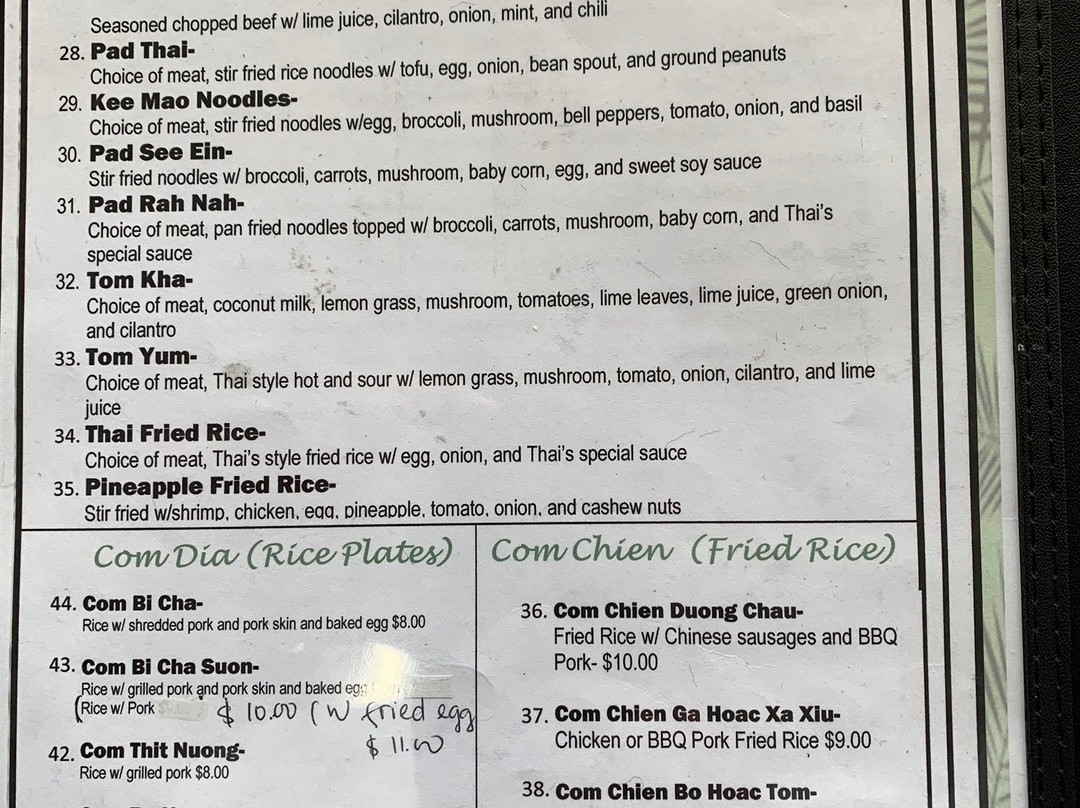 Seasoned chopped beef w/ lime juice, cilantro, onion, mint, and chili
28. Pad Thai-
Choice of meat, stir fried rice noodles w/ tofu, egg, onion, bean spout, and ground peanuts
29. Kee Mao Noodles-
Choice of meat, stir fried noodles w/egg, broccoli, mushroom, bell peppers, tomato, onion, and basil
30. Pad See Ein-
Stir fried noodles w/ broccoli, carrots, mushroom, baby corn, egg, and sweet soy sauce
31. Pad Rah Nah-
Choice of meat, pan fried noodles topped w/ broccoli, carrots, mushroom, baby corn, and Thai's
special sauce
32. Tom Kha-
Choice of meat, coconut milk, lemon grass, mushroom, tomatoes, lime leaves, lime juice, green onion,
and cilantro
33. Tom Yum-
Choice of meat, Thai style hot and sour w/ lemon grass, mushroom, tomato, onion, cilantro, and lime
juice
34. Thai Fried Rice-
Choice of meat, Thai's style fried rice w/ egg, onion, and Thai's special sauce
35. Pineapple Fried Rice-
Stir fried w/shrimp, chicken, egg, pineapple, tomato, onion, and cashew nuts
Com Dia (Rice Plates)
44. Com Bi Cha-
Rice w/ shredded pork and pork skin and baked egg $8.00
43. Com Bi Cha Suon-
Rice w/ grilled pork and pork skin and baked egg
(Rice w/ Pork $10.00 (w fried egg
$11.00
42. Com Thit Nuong-
Rice w/ grilled pork $8.00
Com Chien (Fried Rice)
36. Com Chien Duong Chau-
Fried Rice w/ Chinese sausages and BBQ
Pork- $10.00
37. Com Chien Ga Hoac Xa Xiu-
Chicken or BBQ Pork Fried Rice $9.00
38. Com Chien Bo Hoac Tom-